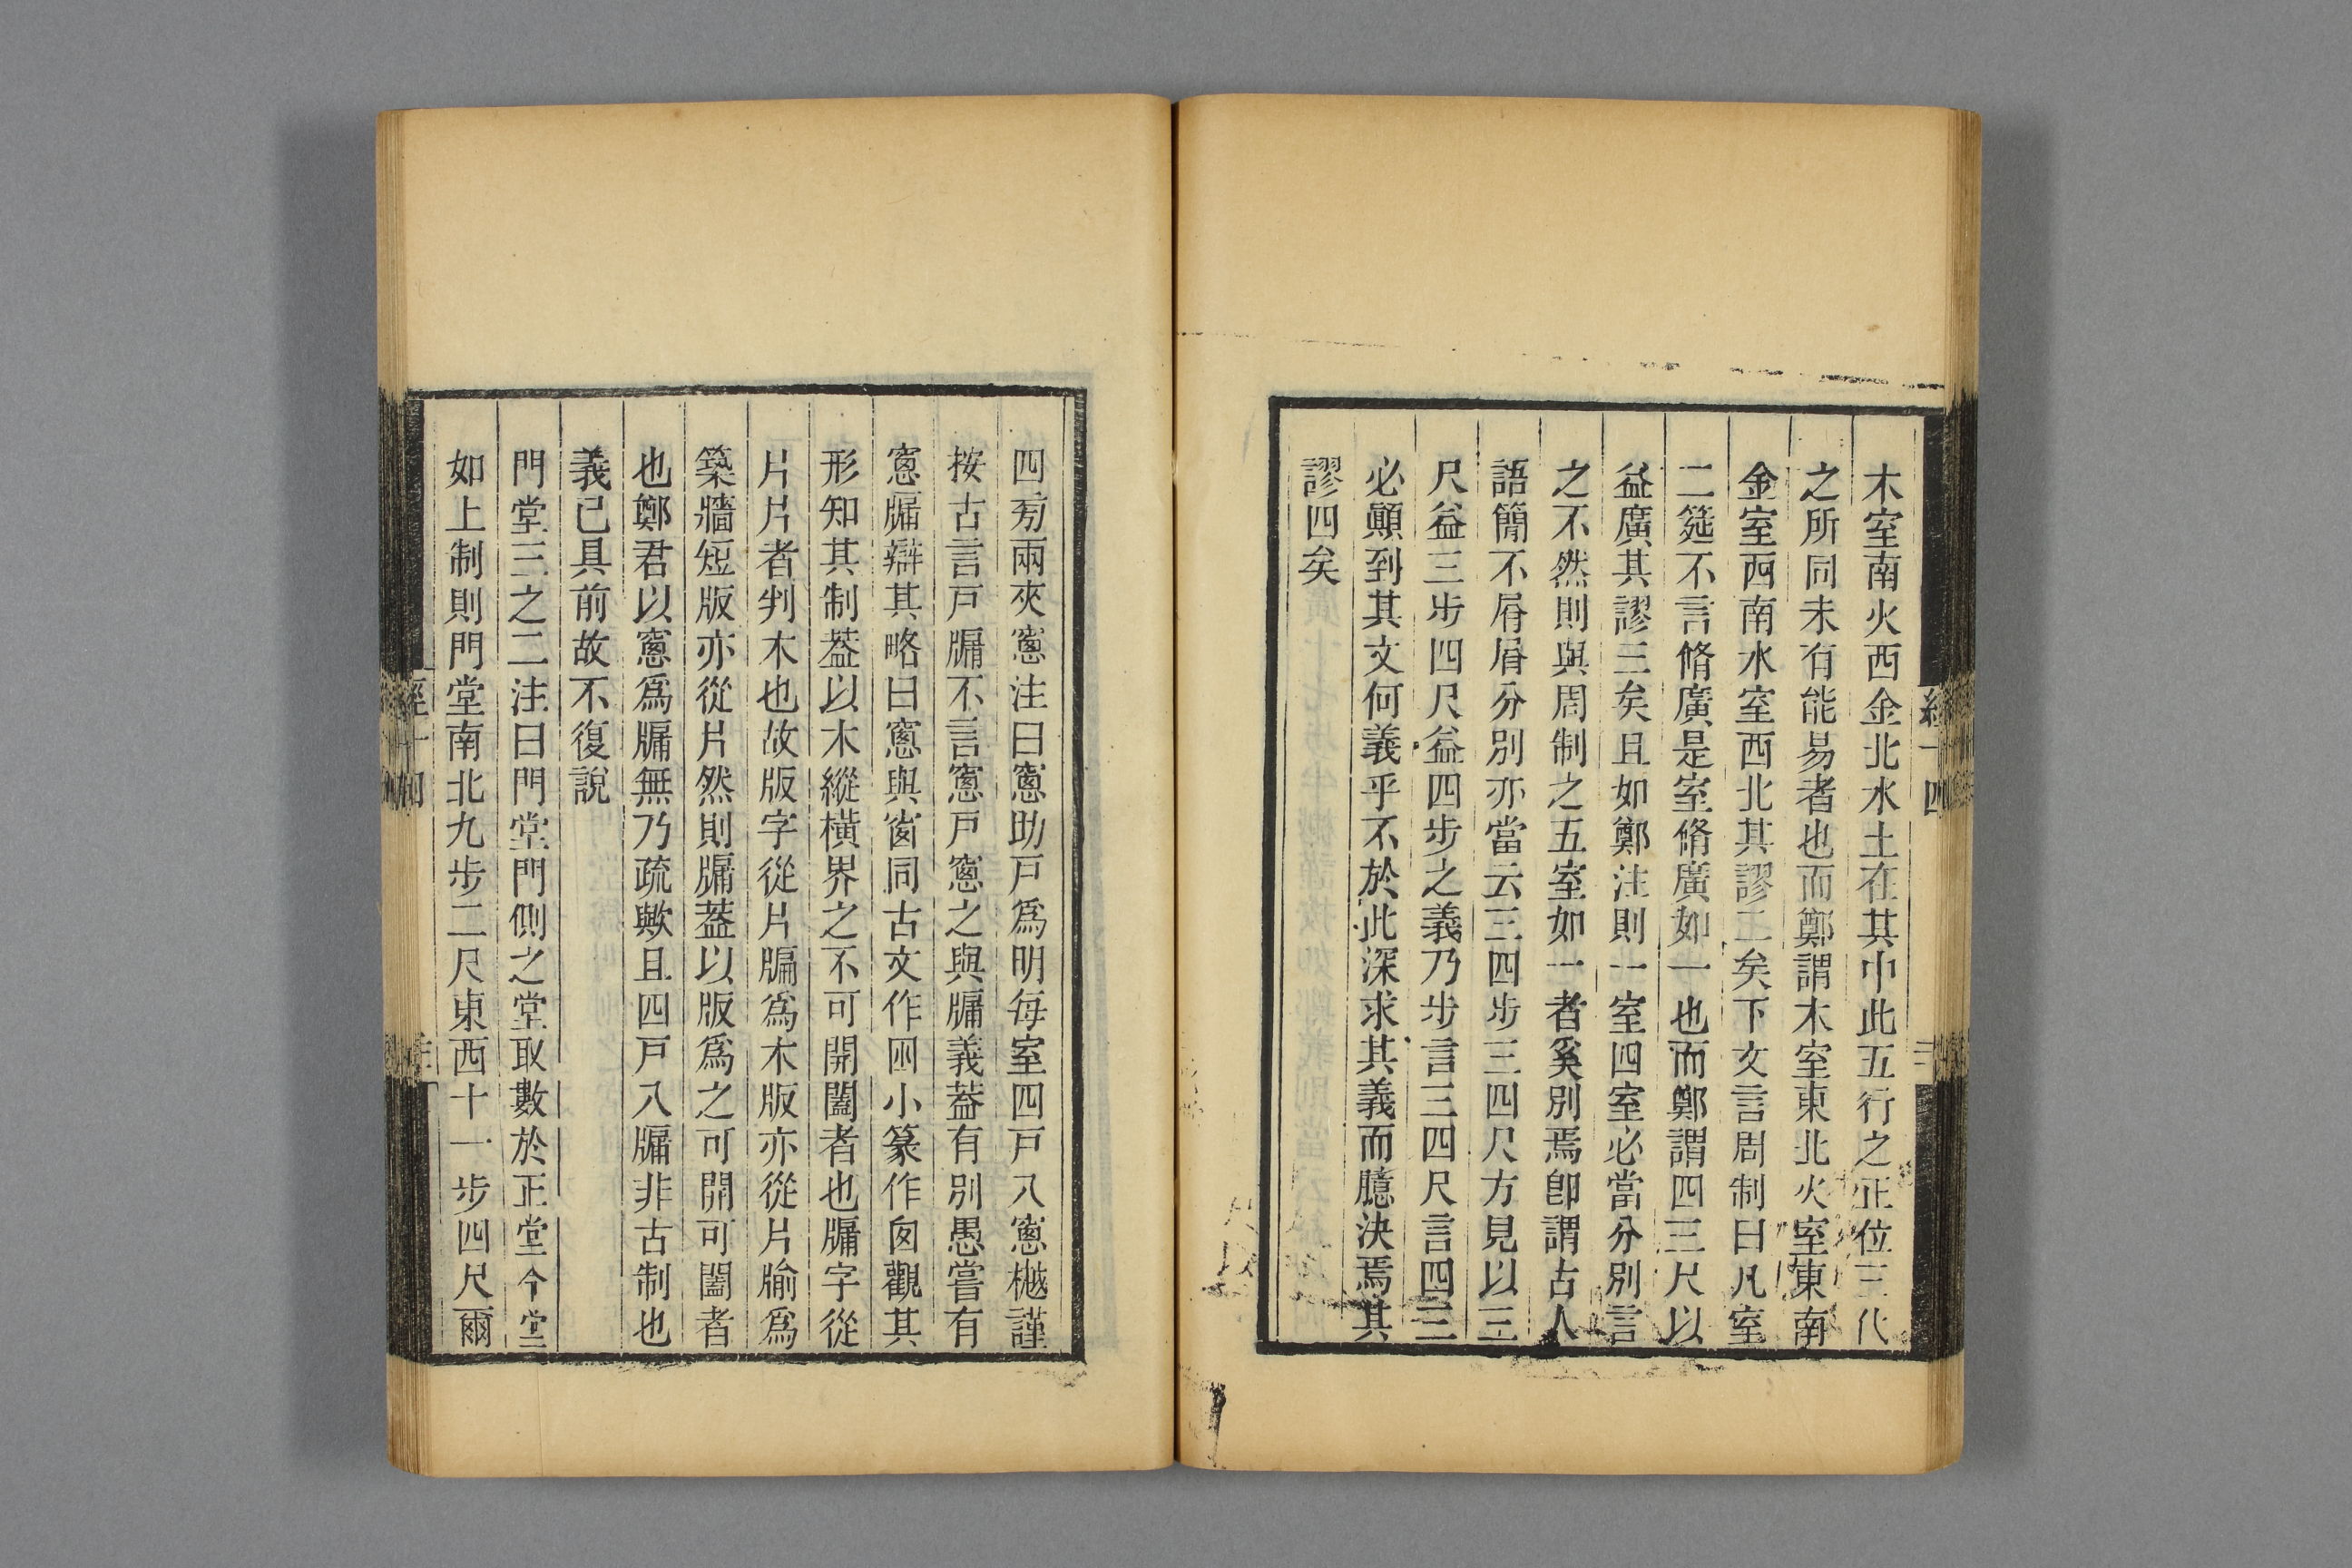 木室南火西金北水土在其中此五行之正位三代
之所同未有能易者也而鄭謂木室東北火室東南
金室西南水室西北其謬二矣下文言周制曰凡室
二筵不言脩廣是室脩廣如一也而鄭謂四三尺以
益廣其謬三矣且如鄭注則一室四室必當分別言
之不然則與周制之五室如一者奚別焉卽謂古人
語簡不屑屑分別亦當云三四步三四尺方見以三
尺益三步四尺益四步之義乃步言三四尺言四三
必顚到其文何義乎不於此深求其義而臆決焉其
謬四矣
經十四
四旁兩夾窻注曰窻助戶爲明每室四戶八窻樾謹
按古言戶牖不言窻戶窻之與牖義葢有別愚嘗有
窻牖辯其略曰窻與窗同古文作囧小篆作囱觀其
形知其制葢以木縱橫界之不可開闔者也牖字從
片片者判木也故版字從片牑爲木版亦從片牏爲
築牆短版亦從片然則牖葢以版爲之可開可闔者
也鄭君以窻爲牖無乃疏歟且四戶八牖非古制也
義已具前故不復說
門堂三之二注曰門堂門側之堂取數於正堂今堂
如上制則門堂南北九步二尺東西十一步四尺爾
經十四